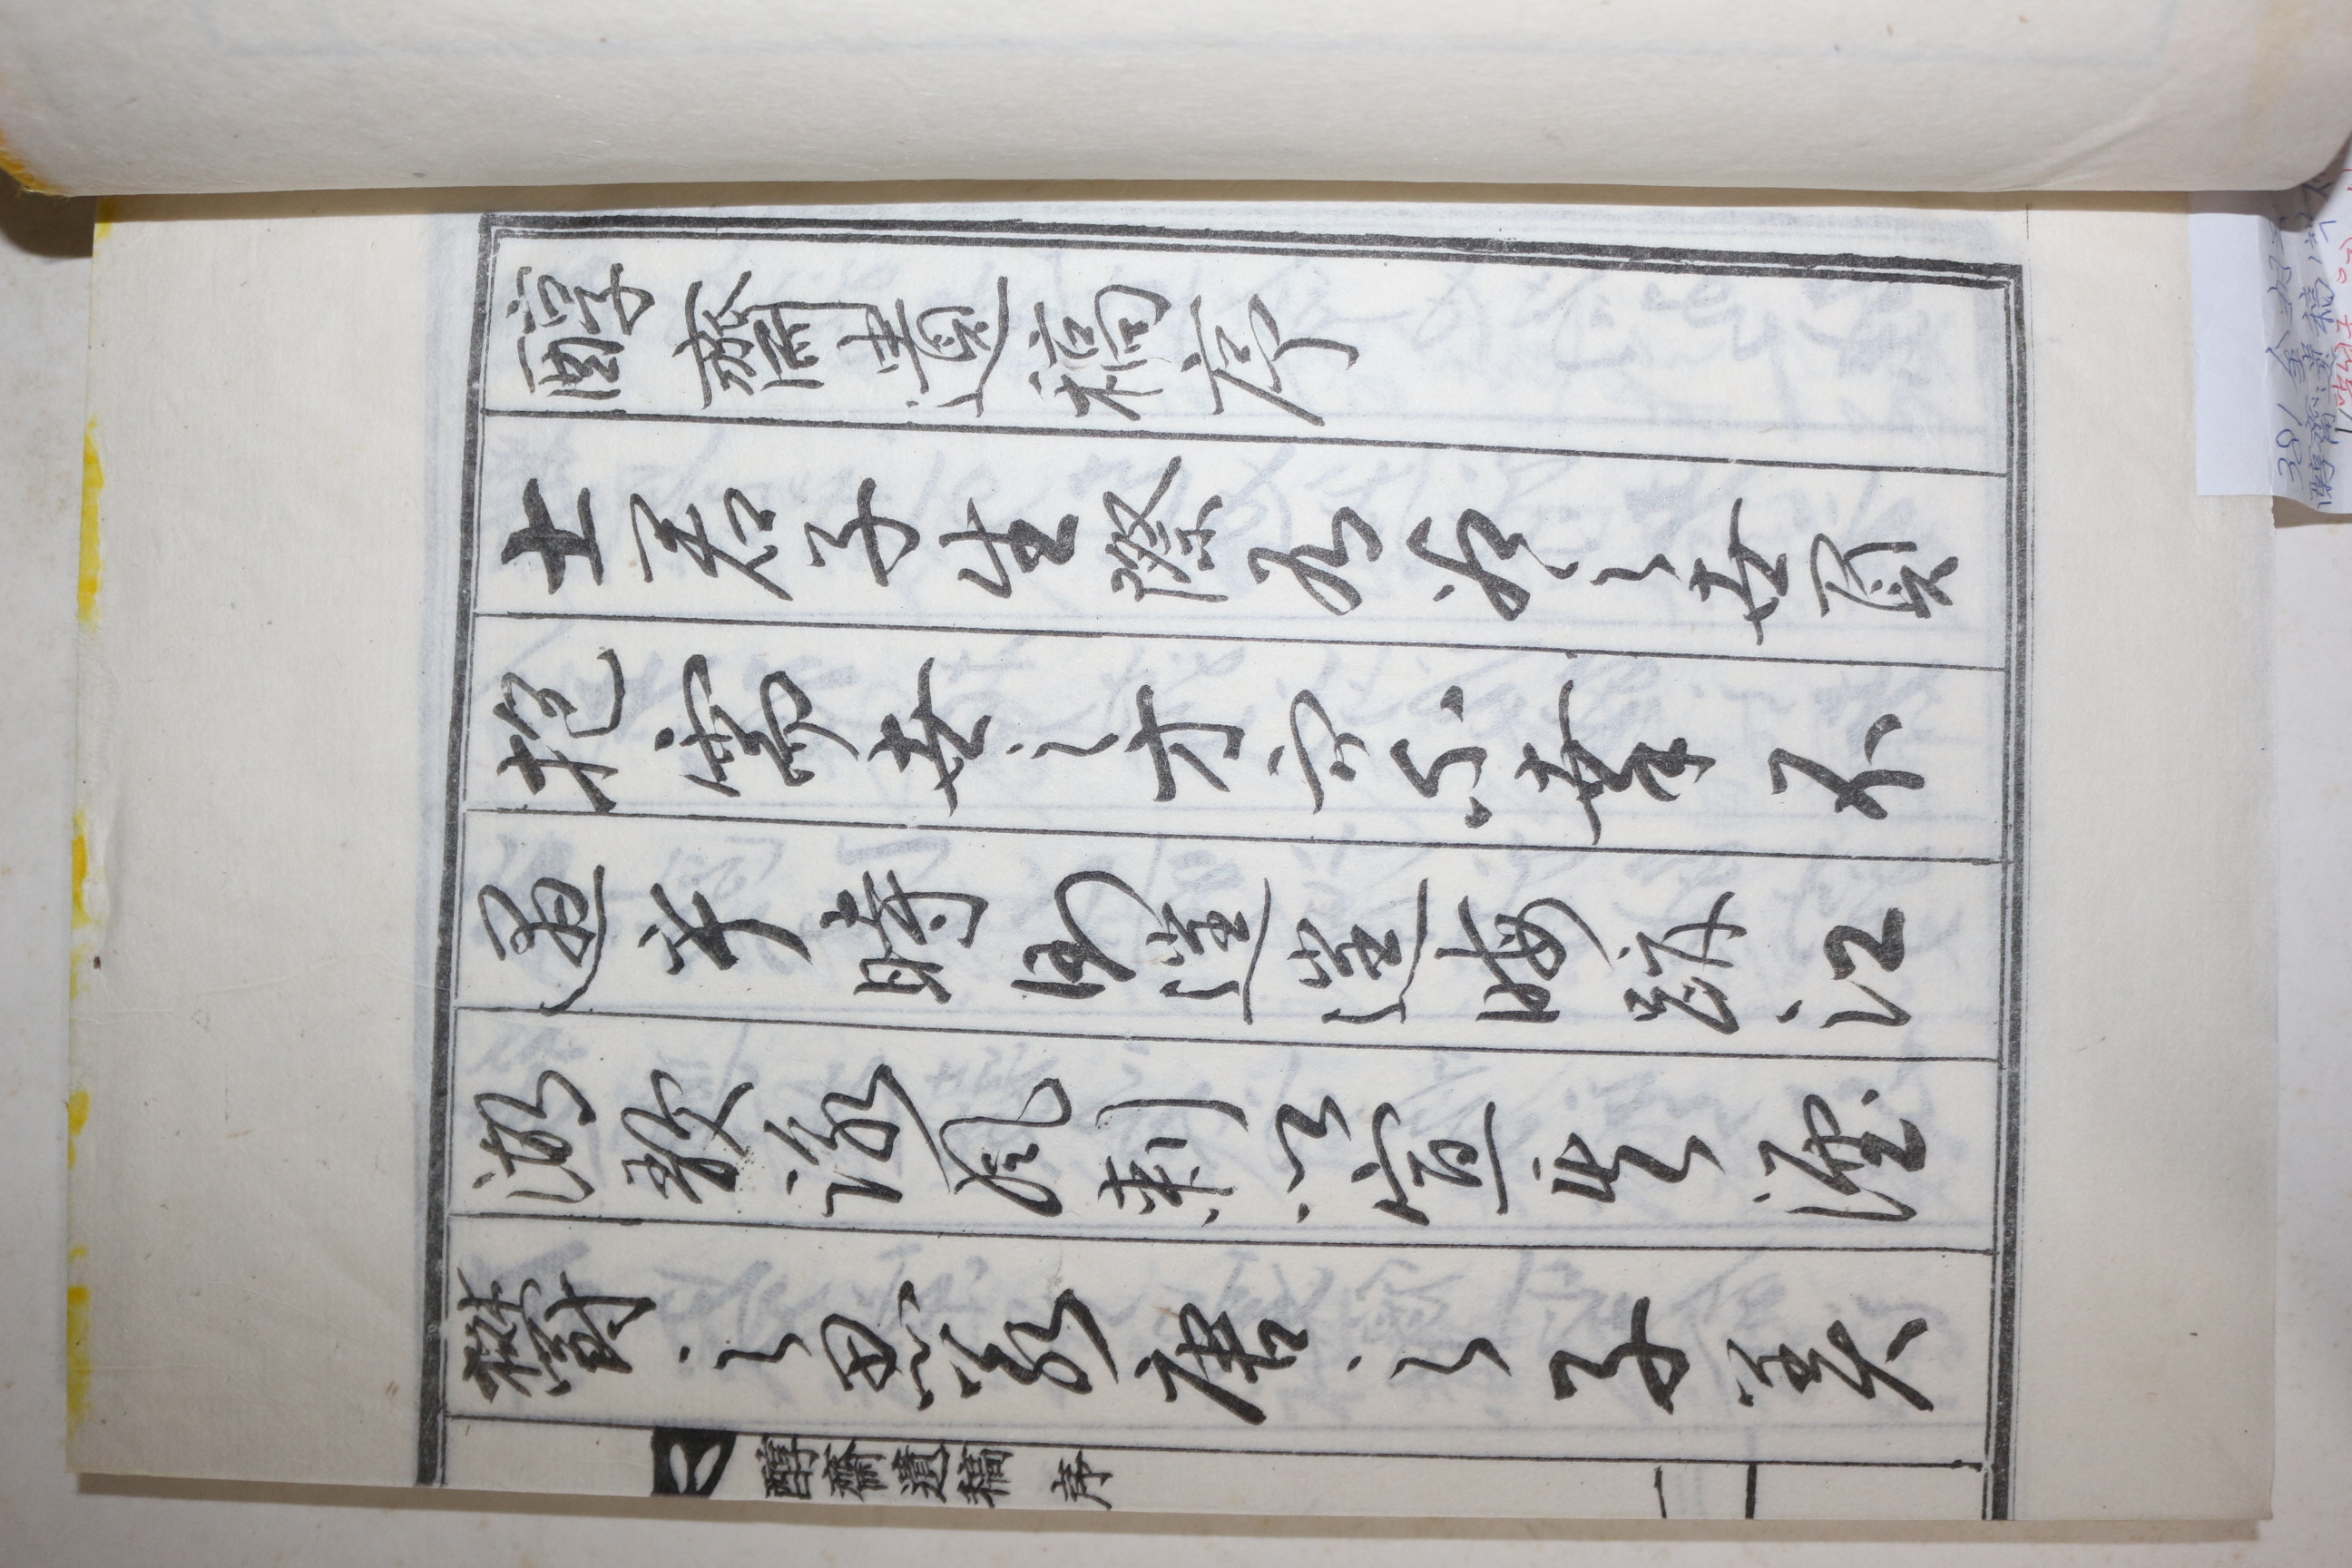 醇齋遺稿序
士君子生際有爲之世負
抱需世之才而不幸不
遇乎時則遑遑晦跡江
湖歌詠風刺以宣其湮
鬱之思若唐之子美
醇齋遺稿 序 一
381 金
醇齋遺稿 1책